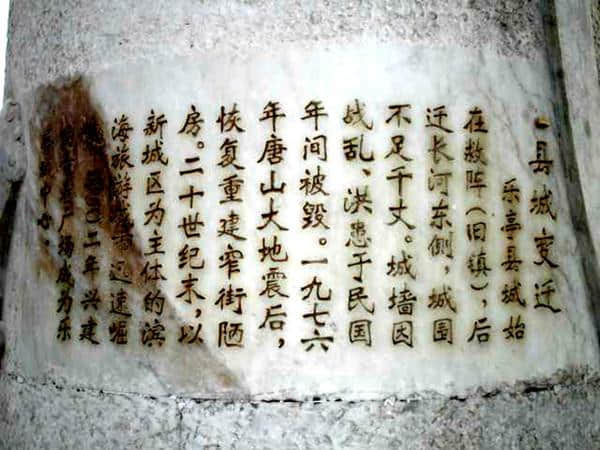 县城变迁
乐亭县城始
在(旧镇),后
迁长河东侧,城围
不足千丈。城墙因
战乱、洪患于民国
年间被毁。一九七六
年唐山大地震后,
恢复重建窄街陋
房。二十世纪末,以
新城区为主体的滨
海旅游城市迅速崛
起。二〇〇二年兴建
广场成为乐